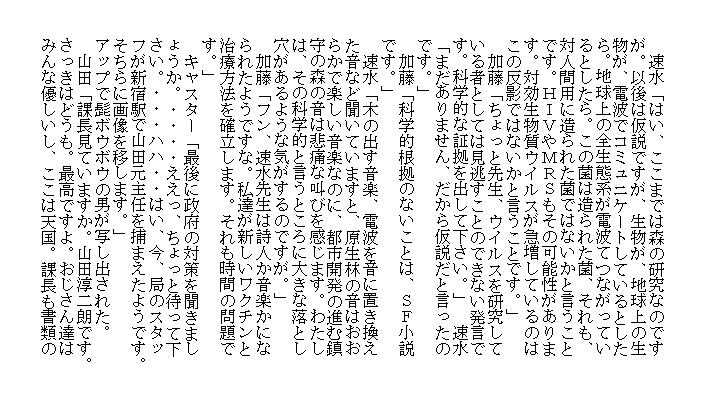 速水「はい、ここまでは森の研究なのです
が。以後は仮説ですが、生物が、地球上の生
物が、電波でコミュニケートしているとした
ら。地球上の全生態系が電波てつながってい
るとしたら。この菌は造られた菌、それも、
対人間用に造られた菌ではないかと言うこと
です。ＨＩＶやＭＲＳもその可能性がありま
す。対効生物質ウイルスが急増しているのは
この反影ではないかと言うことです。」
加藤「ちょっと先生、ウイルスを研究して
いる者としては見逃すことのできない発言で
す。科学的な証拠を出して下さい。」　速水
「まだありません、だから仮説だと言ったの
です。」
加藤「科学的根拠のないことは、ＳＦ小説
です。」
速水「木の出す音楽、電波を音に置き換え
た音など聞いていますと、原生林の音はおお
らかで楽しい音楽なのに、都市開発の進む鎮
守の森の音は悲痛な叫びを感じます。わたし
は、その科学的と言うところに大きな落とし
穴があるような気がするのですが。」
加藤「フン、速水先生は詩人か音楽かにな
られたようですな。私達が新しいワクチンと
治療方法を確立します。それも時間の問題で
す。」
キャスター「最後に政府の対策を聞きまし
ょうか。・・・・ええっ、ちょっと待って下
さい。・・・ハハ・・はい、今、局のスタッ
フが新宿駅で山田元主任を捕まえたようです。
そちらに画像を移します。」
アップで髭ボウボウの男が写し出された。
山田「課長見ていますか。山田淳二朗です。
さっきはどうも。最高ですよ。おじさん達は
みんな優しいし、ここは天国。課長も書類の